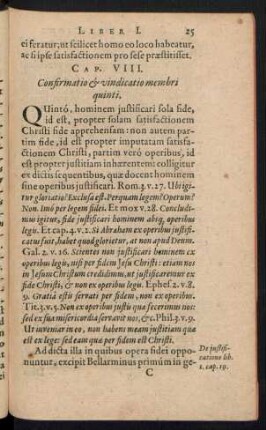 LIBER I. 25
ei feratur; ut scilicet homo eo loco habeatur,
ac si ipse satisfactionem pro sese præstitisset.
CAP. VIII.
Confirmatio & vindicatio membri
quinti.
QUintó, hominem justificari sola fide,
id est, propter solam satisfactionem
Christi fide apprehensam: non autem par-
tim fide, id est propter imputatam satisfa-
ctionem Christi, partim verò operibus, id
est propter justitiam inhærentem: colligitur
ex dictis sequentibus, quæ docent hominem
sine operibus justificari. Rom. 3. v. 27. Ubi igi-
tur gloriatio? Exclusa est. Per quam legem? Operum?
Non. Imò per legem fidei. Et mox v. 28. Concludi-
mus igitur, fide justificari hominem absq, operibus
legis. Et cap. 4. v. 2. Si Abraham ex operibus justifi-
catus fuit, habet quod glorietur, at non apud Deum.
Gal. 2. v. 16. Scientes non justificari hominem ex
operibus legis, nisi per fidem Jesu Christi: etiam nos
in Jesum Christum credidimus, ut justificaremur ex
fide Christi, & non ex operibus legis. Ephes. 2. v. 8.
9. Gratiâ estis servati per fidem, non ex operibus.
Tit. 3. v. 5. Non ex operibus justis quæ fecerimus nos:
sed ex sua misericordia servavit nos; &c. Phil. 3. v. 9.
Ut inveniar in eo, non habens meam justitiam quæ
est ex lege: sed eam quæ per fidem est Christi.
Ad dicta illa in quibus opera fidei oppo-
nuntur, excipit Bellarminus primùm in ge-
De justifi-
catione lib.
1. cap. 19.
C